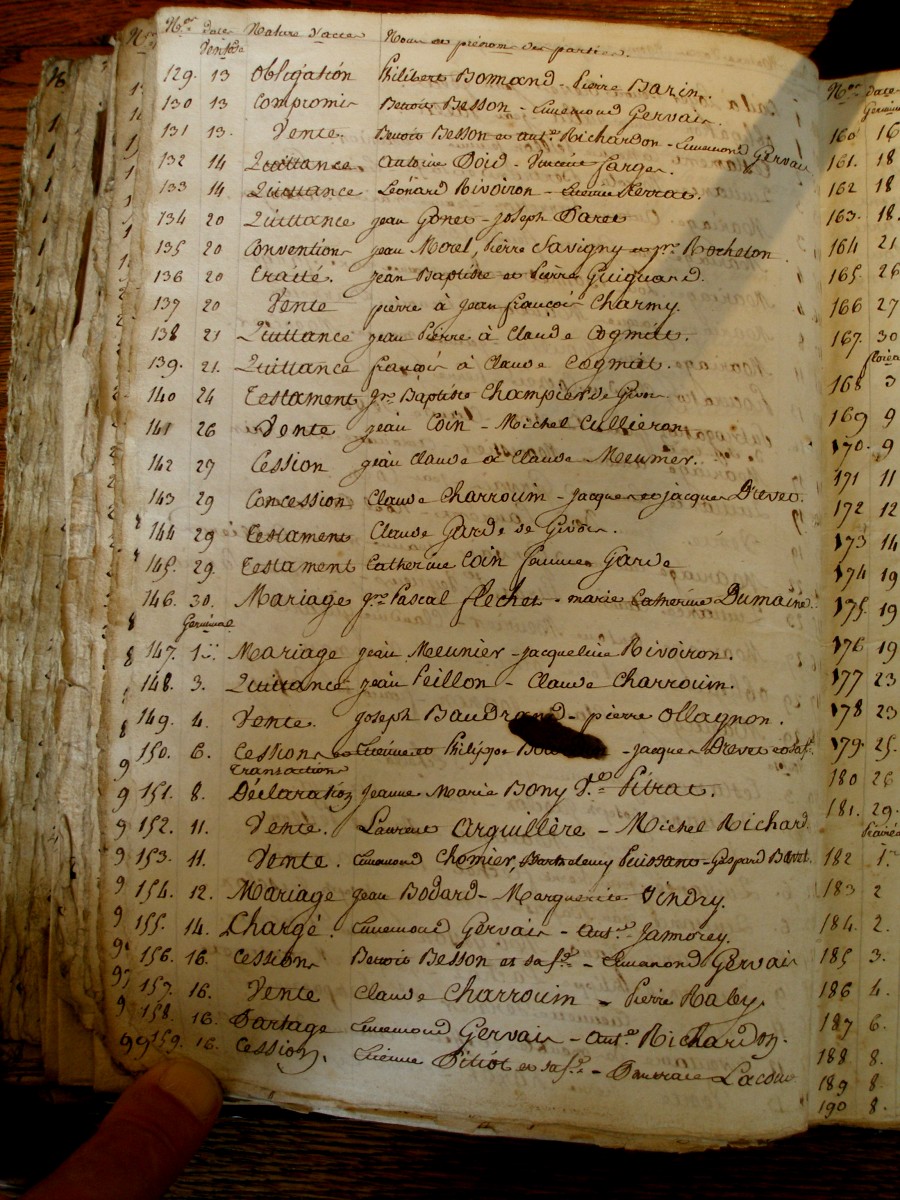 Nos date Nature d'actes Noms et prénoms des parties.
Ventôse
129. 13 Obligation Philibert Bomand - Pierre Barin.
130 13 Compromis Benoit Besson - Ennemond Gervais.
131 13. Vente. Benoit Besson et ant.e Richardon - Ennemond Gervais
132 14 Quittance Antoine Doid - Vincent farge.
133 14 Quittance Léonard Rivoiron - Etienne Ferrat.
134 20 Quittance jean Gonet - joseph Paret
135 20 Convention jean Morel, Pierre Savigny et jn. Rocheton.
136 20 traité. jean Baptiste et Pierre Guiguand.
137 20 Vente pierre à jean françois Charmy.
138 21 Quittance jean Pierre à Claude Cogniet.
139. 21. Quittance françois à Claude Cogniet.
140 24 Testament jn. Baptiste Champier de Givors
141 26 Vente jean Coin - Michel Cullieron
142 27 Cession jean claude à Claude Meunier.
143 29 Concession Claude Charrouin - jacques et jacques Drevet.
144 29 Testament Claude Garde de Givors.
145. 29. Testament Catherine Coin femme Garde
146. 30. Mariage Pascal flechet - marie Catherine Dumaine.
Germinal
147. 1er Mariage jean Meunier - jacqueline Rivoiron.
148. 3. Quittance jean Peillon - Claude Charrouin.
149. 4. Vente. joseph Baudrand - pierre Ollagnon.
150. 6. Cession et Etienne et Philippe - jacques Drevet et sa f.e
Transaction
151. 8. Déclaration jeanne Marie Bony v.e Pitrat.
152. 11. Vente. Laurent Arguillère - Michel Richard
153. 11. Vente. Ennemond Chomier, Barthelemy Puissant - Gaspard Bavet.
154. 12. Mariage jean Bodard - Marguerite Vindry.
155. 14. Chargé. Ennemond Gervais - ant.e Jamorey.
156. 16. Cession Benoit Besson et sa f.e - Ennemond Gervais
157. 16. Vente Claude Charrouin - Pierre Raby
158. 16. Partage Ennemond Gervais - ant.e Richardon.
159. 16. Cession. Etienne Pitiot et sa f.e - Lacour
Nos Date
Germinal
160 16
161. 18
162 18
163. 18.
164 21
165. 26
166 27
167. 30
floréal
168 3
169 9
170. 9
171 11
172 12
173 14
174 19
175. 19
176 19
177 23
178 23
179. 25.
180 26
181. 29.
Prairéal
182 1er
183 2
184. 2.
185 3.
186 4.
187 6.
188 8.
189 8.
190 8.